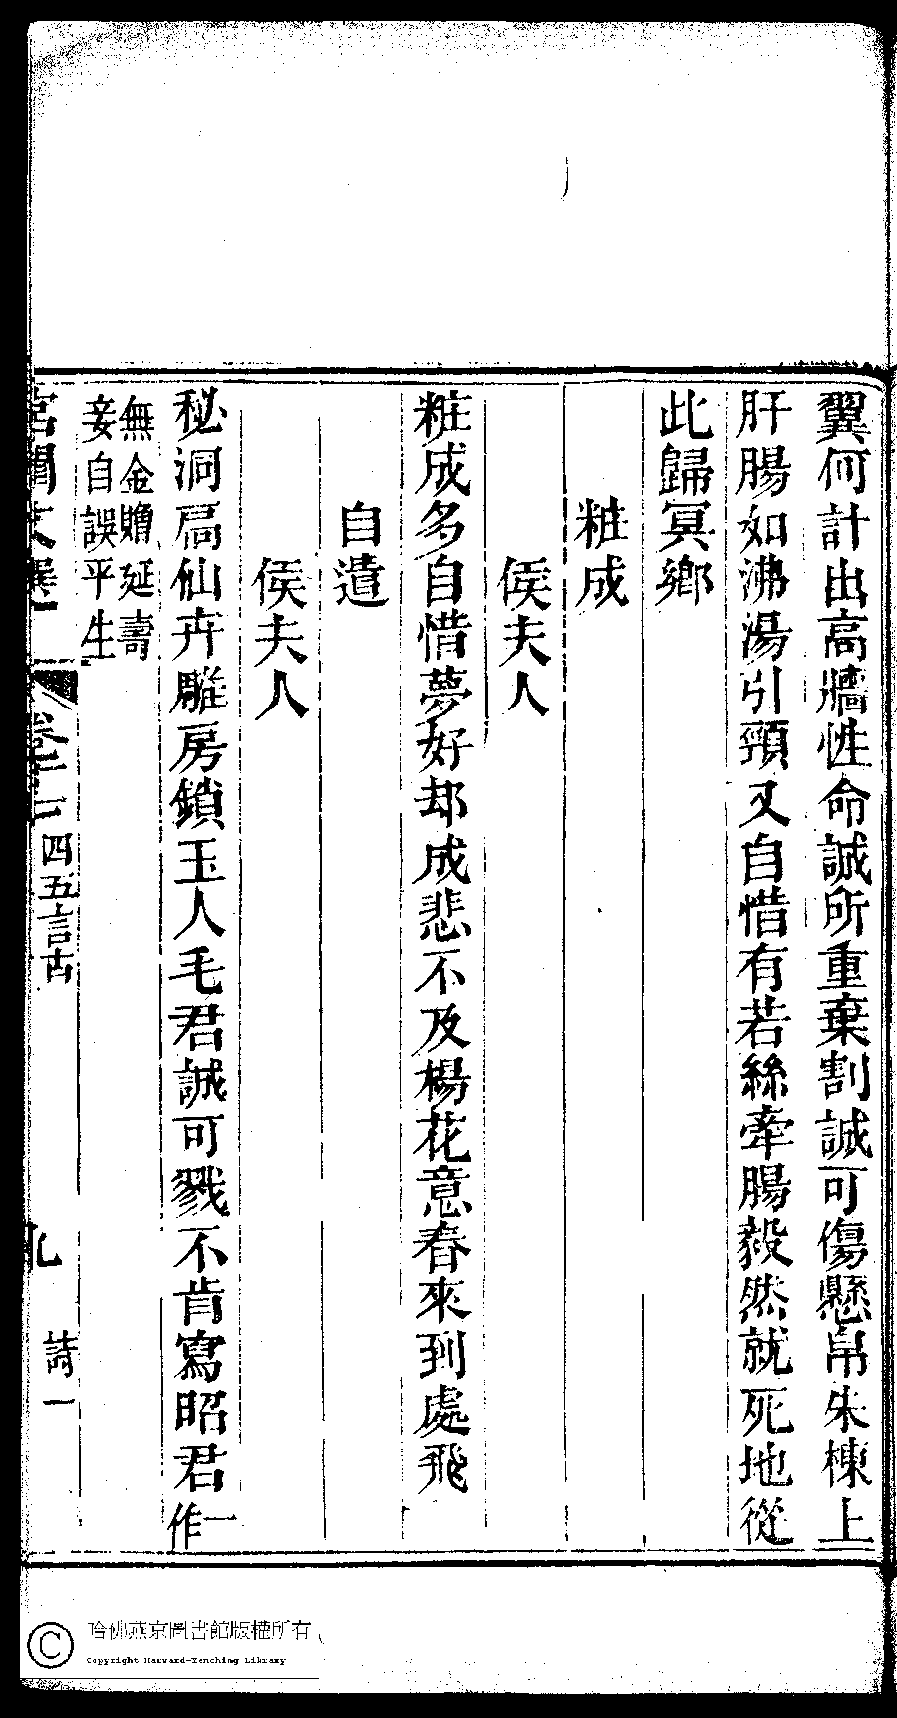 翼何計出高牆性命誠所重棄割誠可傷懸帛朱棟上
肝腸如沸湯引頸又自惜有若絲牽腸毅然就死地從
此歸冥鄉
粧成
侯夫人
粧成多自惜夢好却成悲不及楊花意春來到處飛
自遣
侯夫人
秘洞扃仙卉雕房鎖玉人毛君誠可戮不肯寫昭君一作
無金贈延壽
妾自誤平生
宮閨文選 卷二七 四五言古 九 詩一
哈佛燕京圖書館版權所有
Copyright Harvard-Yenching Library